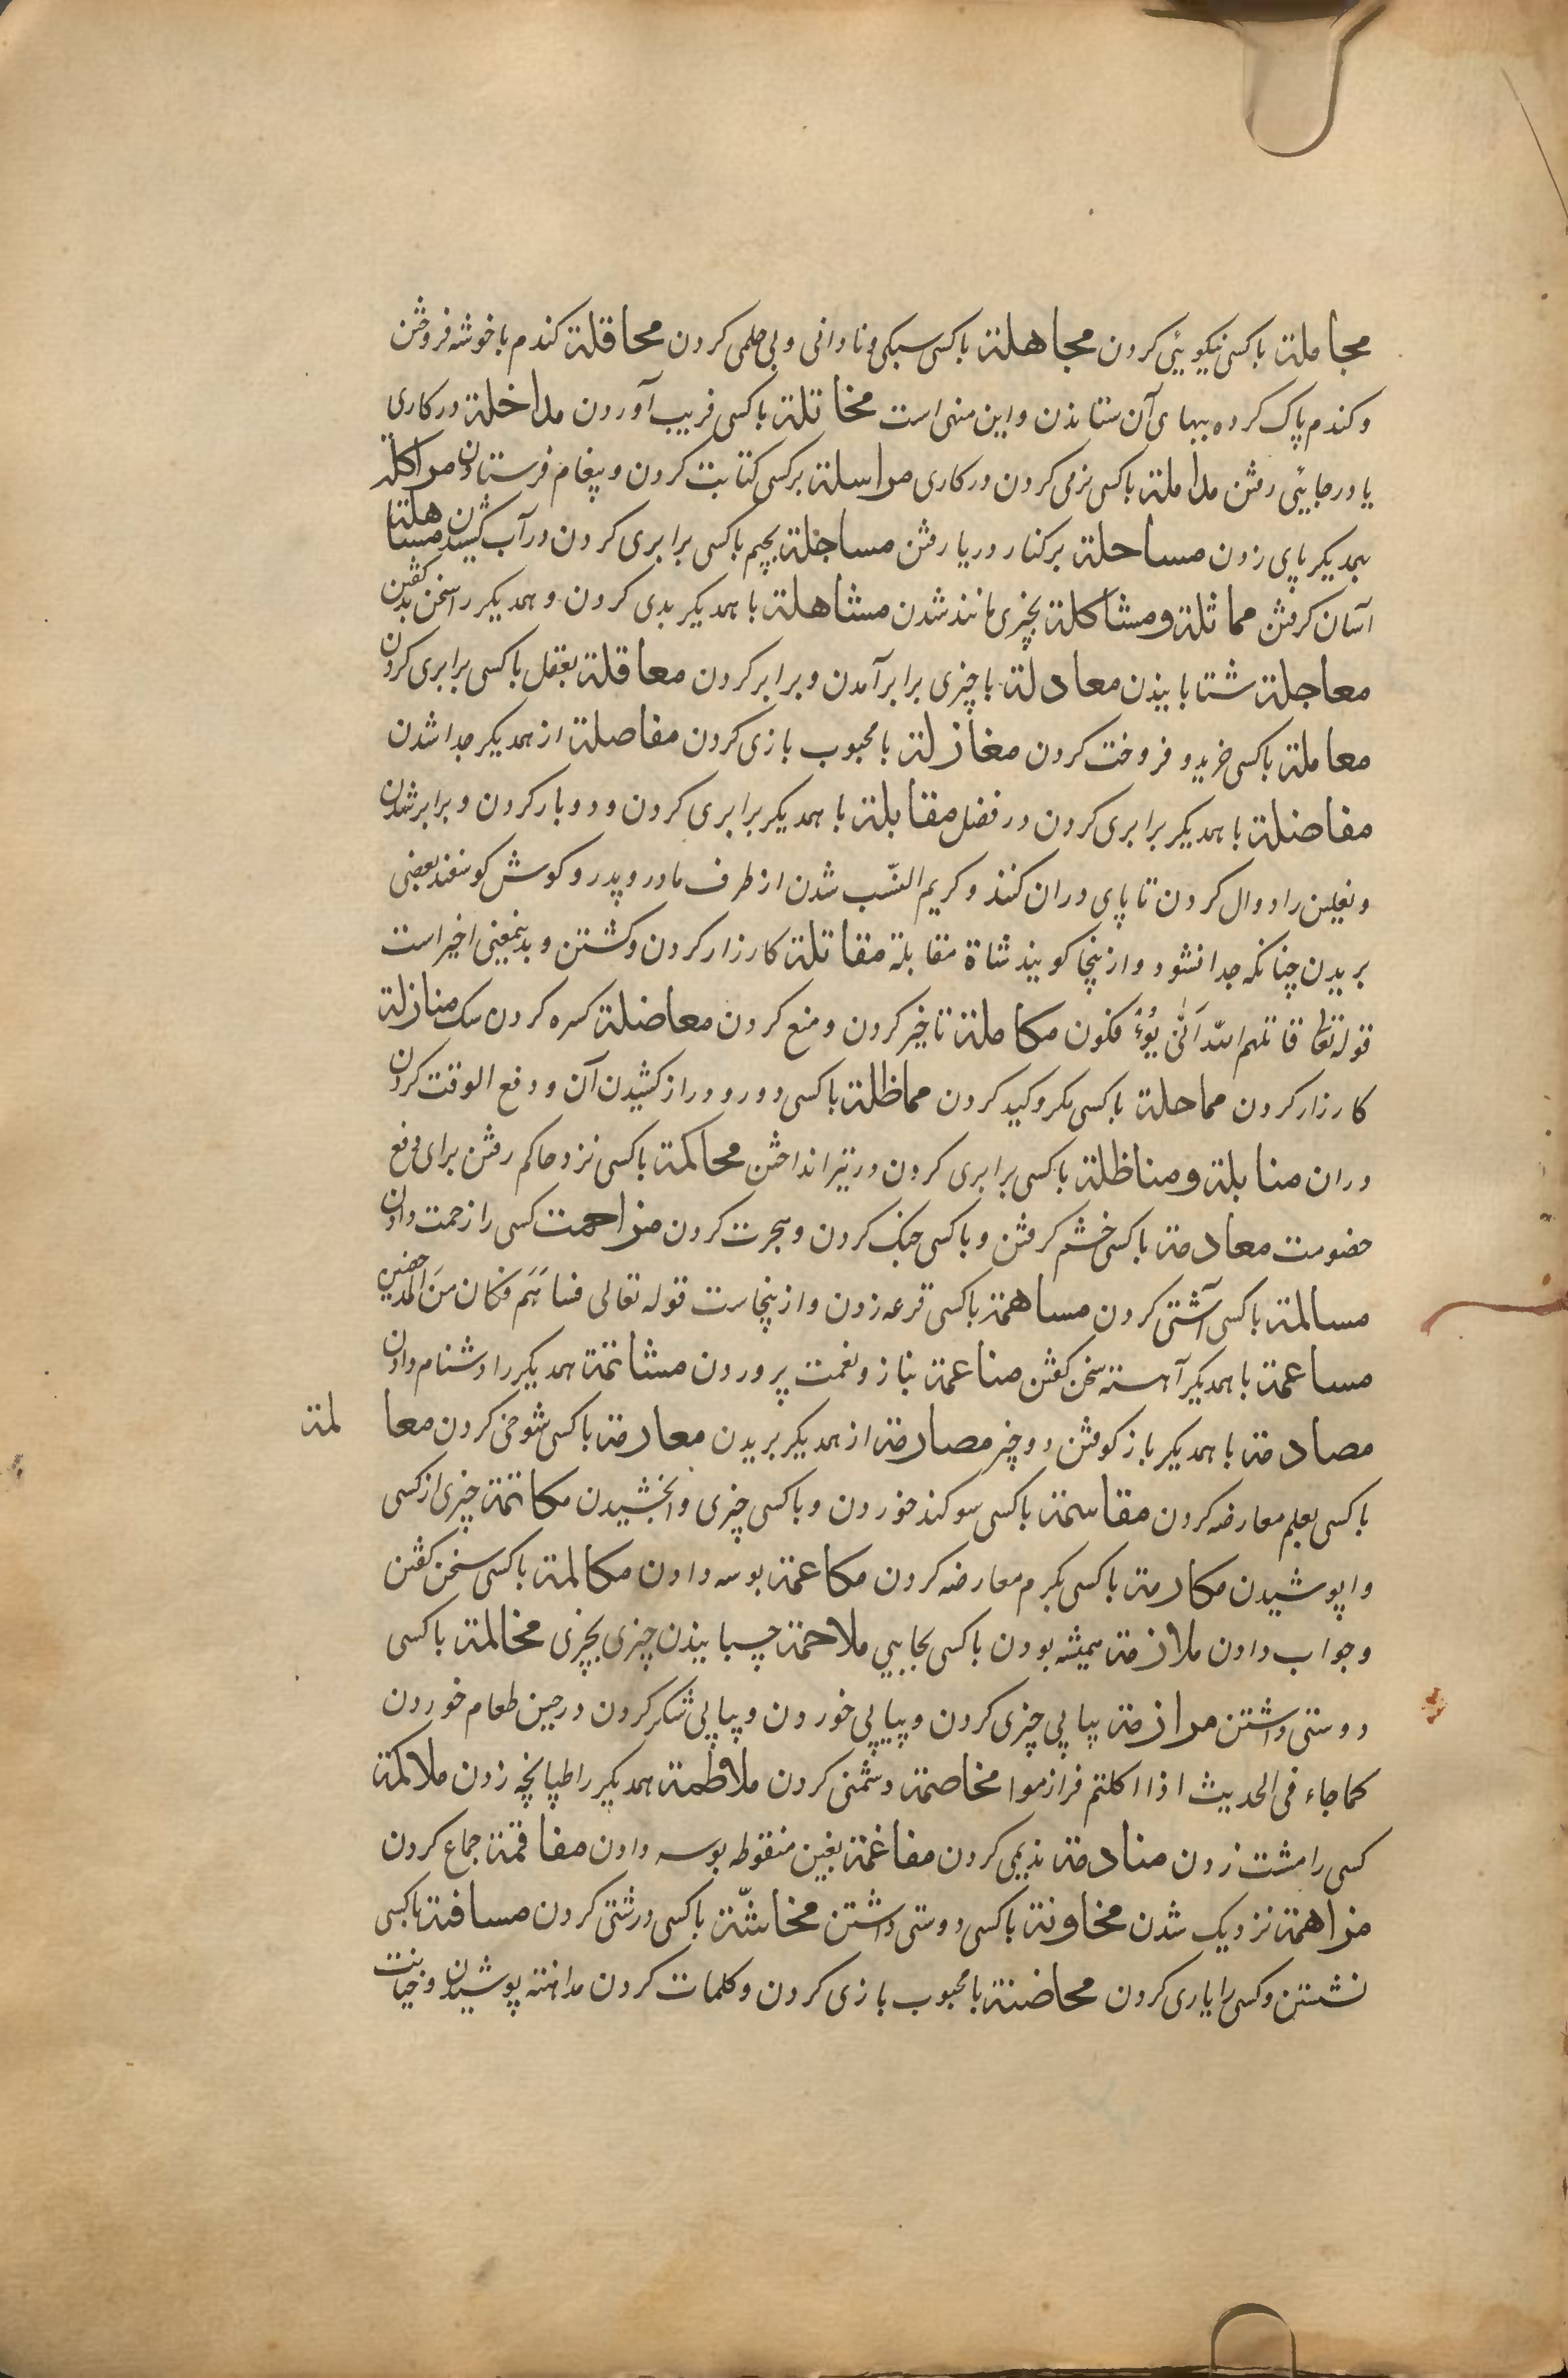 مجاملة باکسی نیکویئی کردن مجاهلة باکسی سبکی و نادانی و بی حلمی کردن محاقلة کندم با خوشه فروختن
و کندم پاک کرده ببهای آن ستاندن و این منهی است مخاتلة باکسی فریب آوردن مداخلة در کاری
یا در جایئی رفتن مداملة باکسی نرمی کردن در کاری مراسلة بر کسی کتابت کردن و پیغام فرستادن مراکلة
بهمدیکر پای زدن مساحلة بر کنار دریا رفتن مساجلة بچیم باکسی برابری کردن در آب کشیدن مساهلة
آسان کرفتن مماثلة و مشاکلة بچیزی مانند شدن مشاهلة با همدیکر بدی کردن و همدیکر را سخن بد کفتن
معاجلة شتابانیدن معادلة با چیزی برابر آمدن و برابر کردن معاقلة بعقل باکسی برابری کردن
معاملة باکسی خرید و فروخت کردن مغازلة با محبوب بازی کردن مفاصلة از همدیکر جدا شدن
مفاضلة با همدیکر برابری کردن در فضل مقابلة با همدیکر برابری کردن و دوبار کردن و برابر شدن
و نعلین را دوال کردن تا پای در ان کنند و کریم النسّب شدن از طرف مادر و پدر و کوش کوسفند بعضی
بریدن چنانکه جدا نشود و ازینجا کویند شاة مقابلة مقاتلة کارزار کردن و کشتن و بدینمعنی اخیر است
قوله تعا قاتلهم الله اَنّٰی یُؤْفکون مکاملة تاخیر کردن و منع کردن معاضلة کسره کردن سک منازلة
کارزار کردن مماحلة باکسی مکر و کید کردن مماظلة باکسی دور و دراز کشیدن آن و دفع الوقت کردن
در ان منابلة و مناظلة باکسی برابری کردن در تیر انداختن محاکمة باکسی نزد حاکم رفتن برای دفع
خصومت معادمة باکسی خشم کرفتن و باکسی جنک کردن و هجرت کردن مزاحمت کسی را زحمت دادن
مسالمة باکسی آشتی کردن مساهمة باکسی قرعه زدن و ازینجاست قوله تعالی فساهَمَ فکان مِنَ المدحضین
مساعمة با همدیکر آهسته سخن کفتن مناعمة بناز و نعمت پروردن مشاتمة همدیکر را دشنام دادن
مصادمة با همدیکر باز کوفتن دو چیز مصارمة از همدیکر بریدن معارمة باکسی شوخی کردن معا لمة
باکسی بعلم معارضه کردن مقاسمة باکسی سوکند خوردن و باکسی چیزی وا بخشیدن مکاتمة چیزی از کسی
وا پوشیدن مکارمة باکسی بکرم معارضه کردن مکاعمة بوسه دادن مکالمة باکسی سخن کفتن
و جواب دادن ملازمة همیشه بودن باکسی بجایی ملاحمة چسبانیدن چیزی بچیزی مخالمة باکسی
دوستی داشتن مرازمة پیاپی چیزی کردن و پیاپی خوردن و پیاپی شکر کردن در حین طعام خوردن
کما جاء فی الحدیث اذا اکلتم فرازموا مخاصمة دشمنی کردن ملاطمة همدیکر را طپانچه زدن ملاکمة
کسی را مشت زدن منادمة ندیمی کردن مفاغمة بغین منقوطه بوسه دادن مفاقمة جماع کردن
مزاهمة نزدیک شدن مخاونة باکسی دوستی داشتن مخاشنّة باکسی درشتی کردن مسافنة باکسی
نشستن و کسی را یاری کردن محاضنة با محبوب بازی کردن و کلمات کردن مداهنه پوشیدن و خیانت